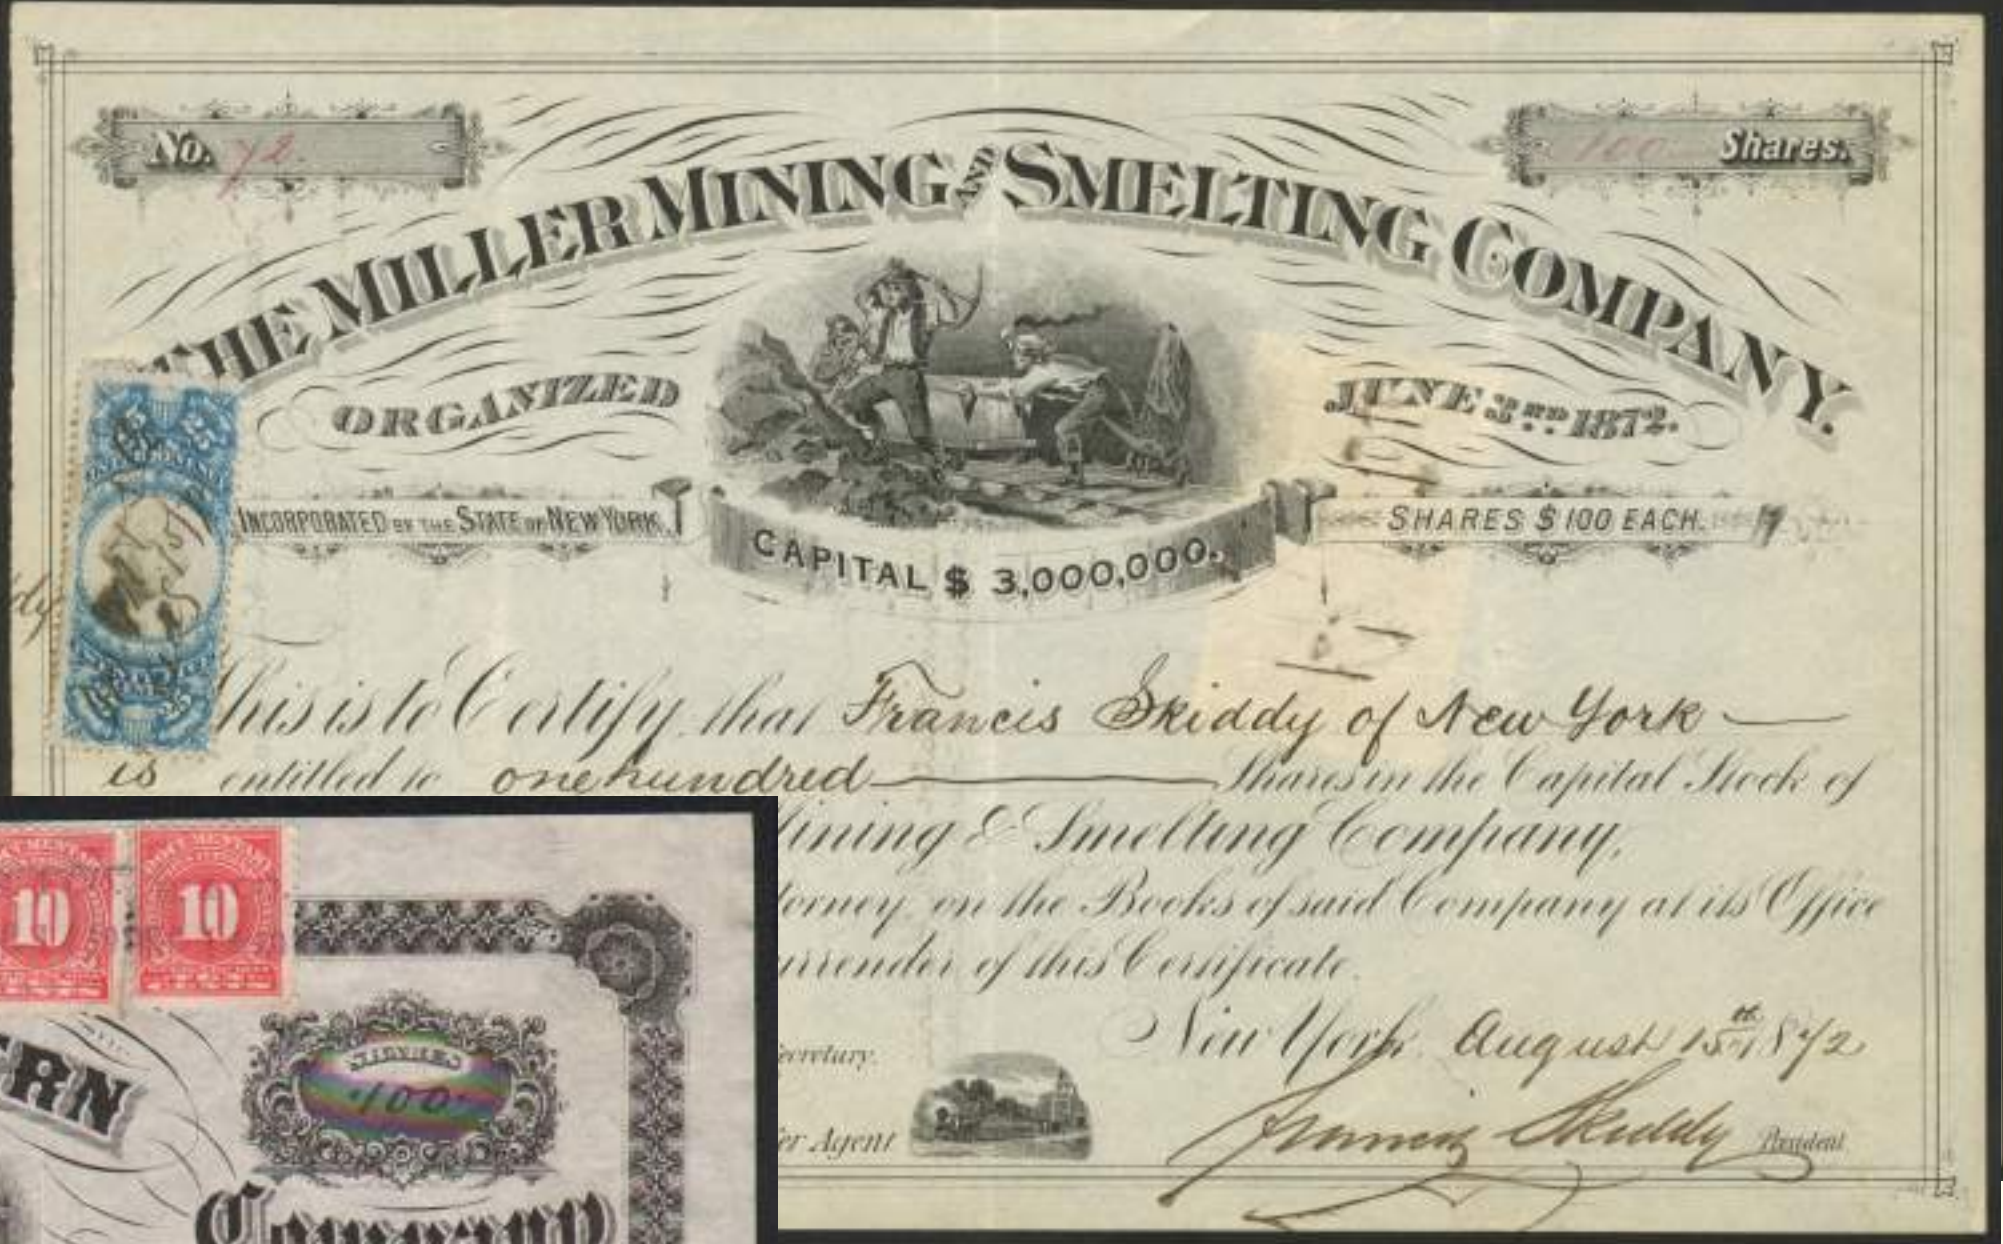 No. 72
100 Shares.
THE MILLER MINING AND SMELTING COMPANY.
ORGANIZED JUNE 3RD 1872.
INCORPORATED BY THE STATE OF NEW YORK.
CAPITAL $ 3,000,000.
SHARES $100 EACH.
This is to Certify that Francis Skiddy of New York
is entitled to one hundred Shares in the Capital Stock of
Mining & Smelting Company,
on the Books of said Company at its Office
of this Certificate.
New York August 15th 1872
Francis Skiddy President
Secretary.
Agent
DOCUMENTARY
10
10
SHARES
100
RN
Company